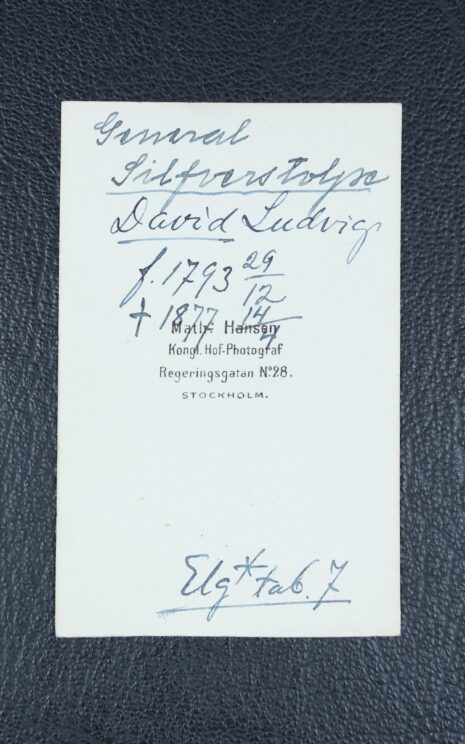 General
Silfverstolpe
David Ludvig
f. 1793 29/12
† 1877 14/4
Math. Hansen
Kongl. Hof-Photograf
Regeringsgatan Nº 28.
STOCKHOLM.
Elg* tab. 7